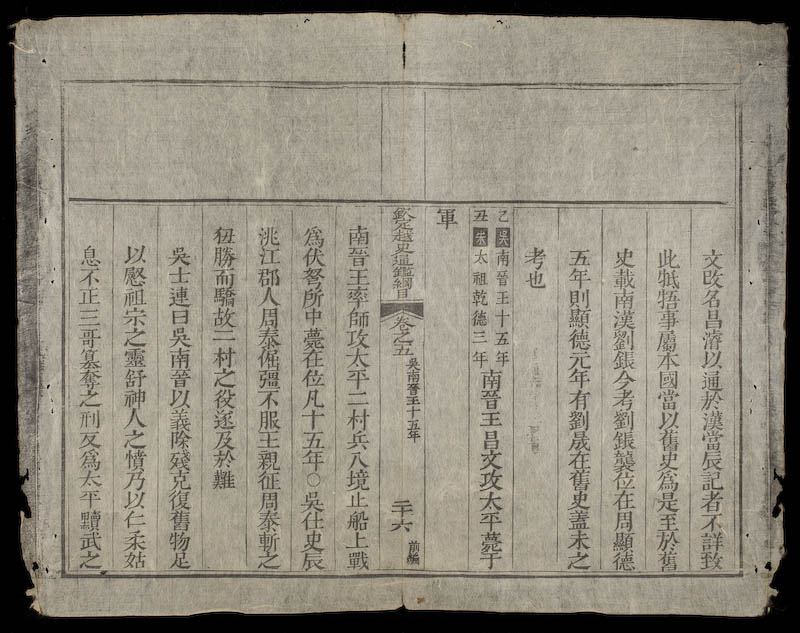 文改名昌濬以通於漢當辰記者不詳致
此牴牾事屬本國當以舊史爲是至於舊
史載南漢劉鋹今考劉鋹襲位在周顯德
五年則顯德元年有劉晟在舊史蓋未之
考也
乙丑 吳南晉王十五年 宋太祖乾德三年 南晉王昌文攻太平薨于
軍
欽定越史通鑑綱目 卷之五 吳南晉王十五年 二十六 前編
南晉王率師攻太平二村兵入境止船上戰
爲伏弩所中薨在位凡十五年○吳仕史辰
洮江郡人周泰倔彊不服王親征周泰斬之
狃勝而驕故二村之役遂及於難
吳士連曰吳南晉以義除殘克復舊物足
以慰祖宗之靈舒神人之憤乃以仁柔姑
息不正三哥篡奪之刑反爲太平黷武之